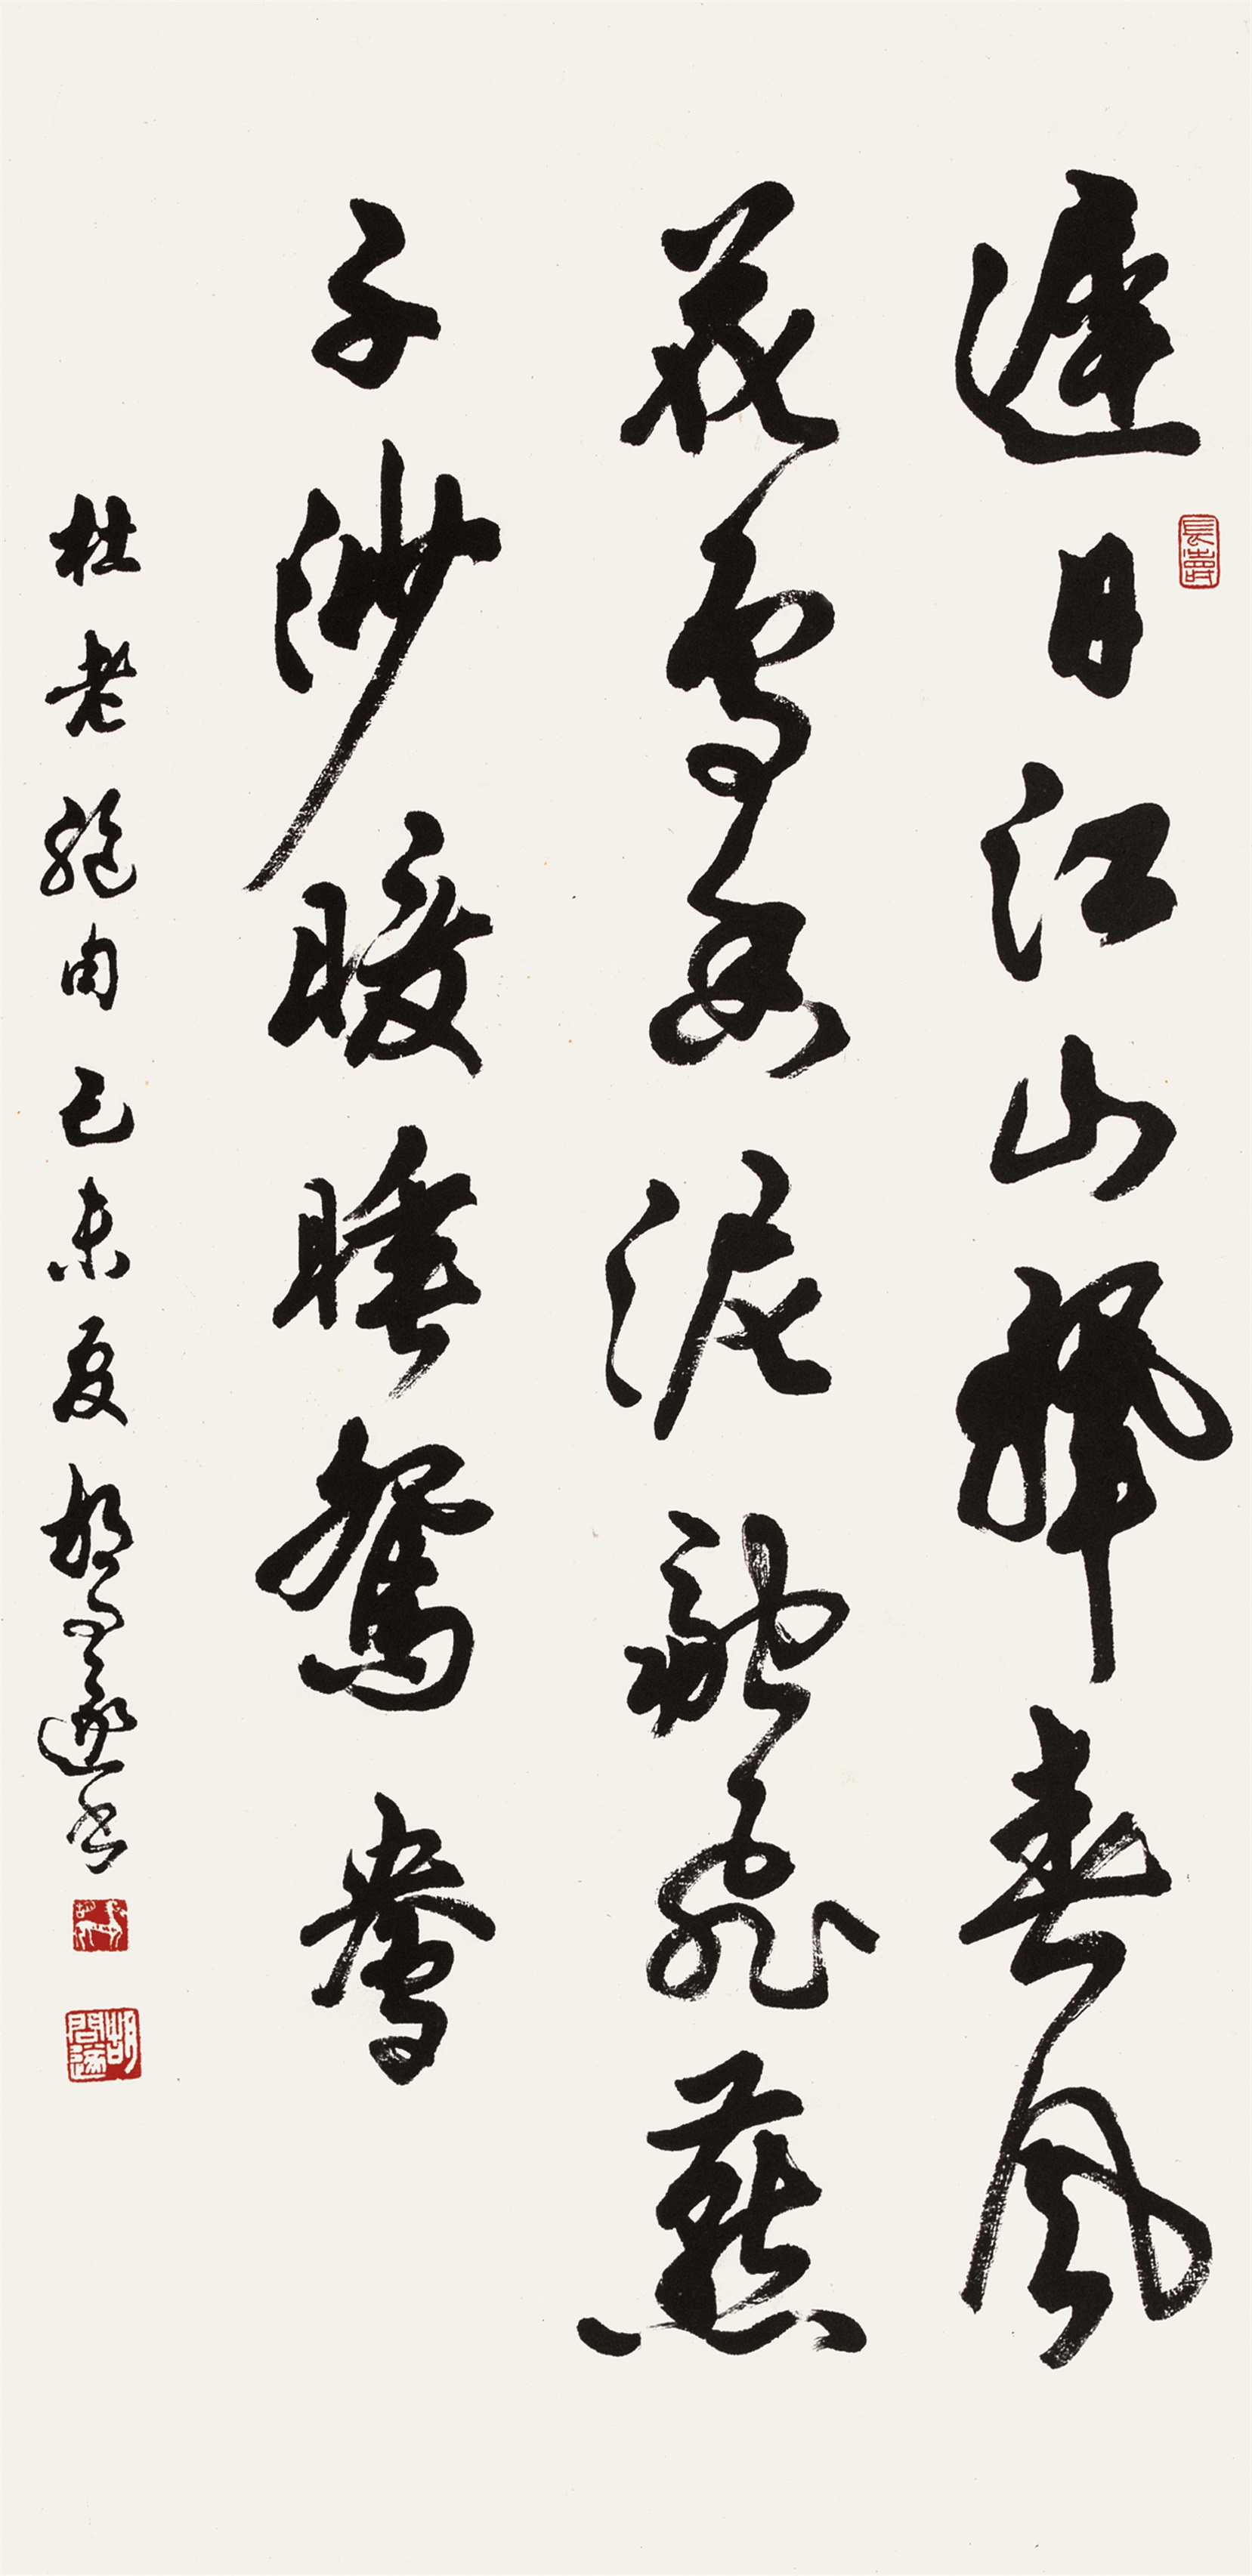 遲日江山麗春風
花草香泥融飛燕
子沙暖睡鴛鴦
杜老絕句己未夏胡問遂書
長壽
胡問遂